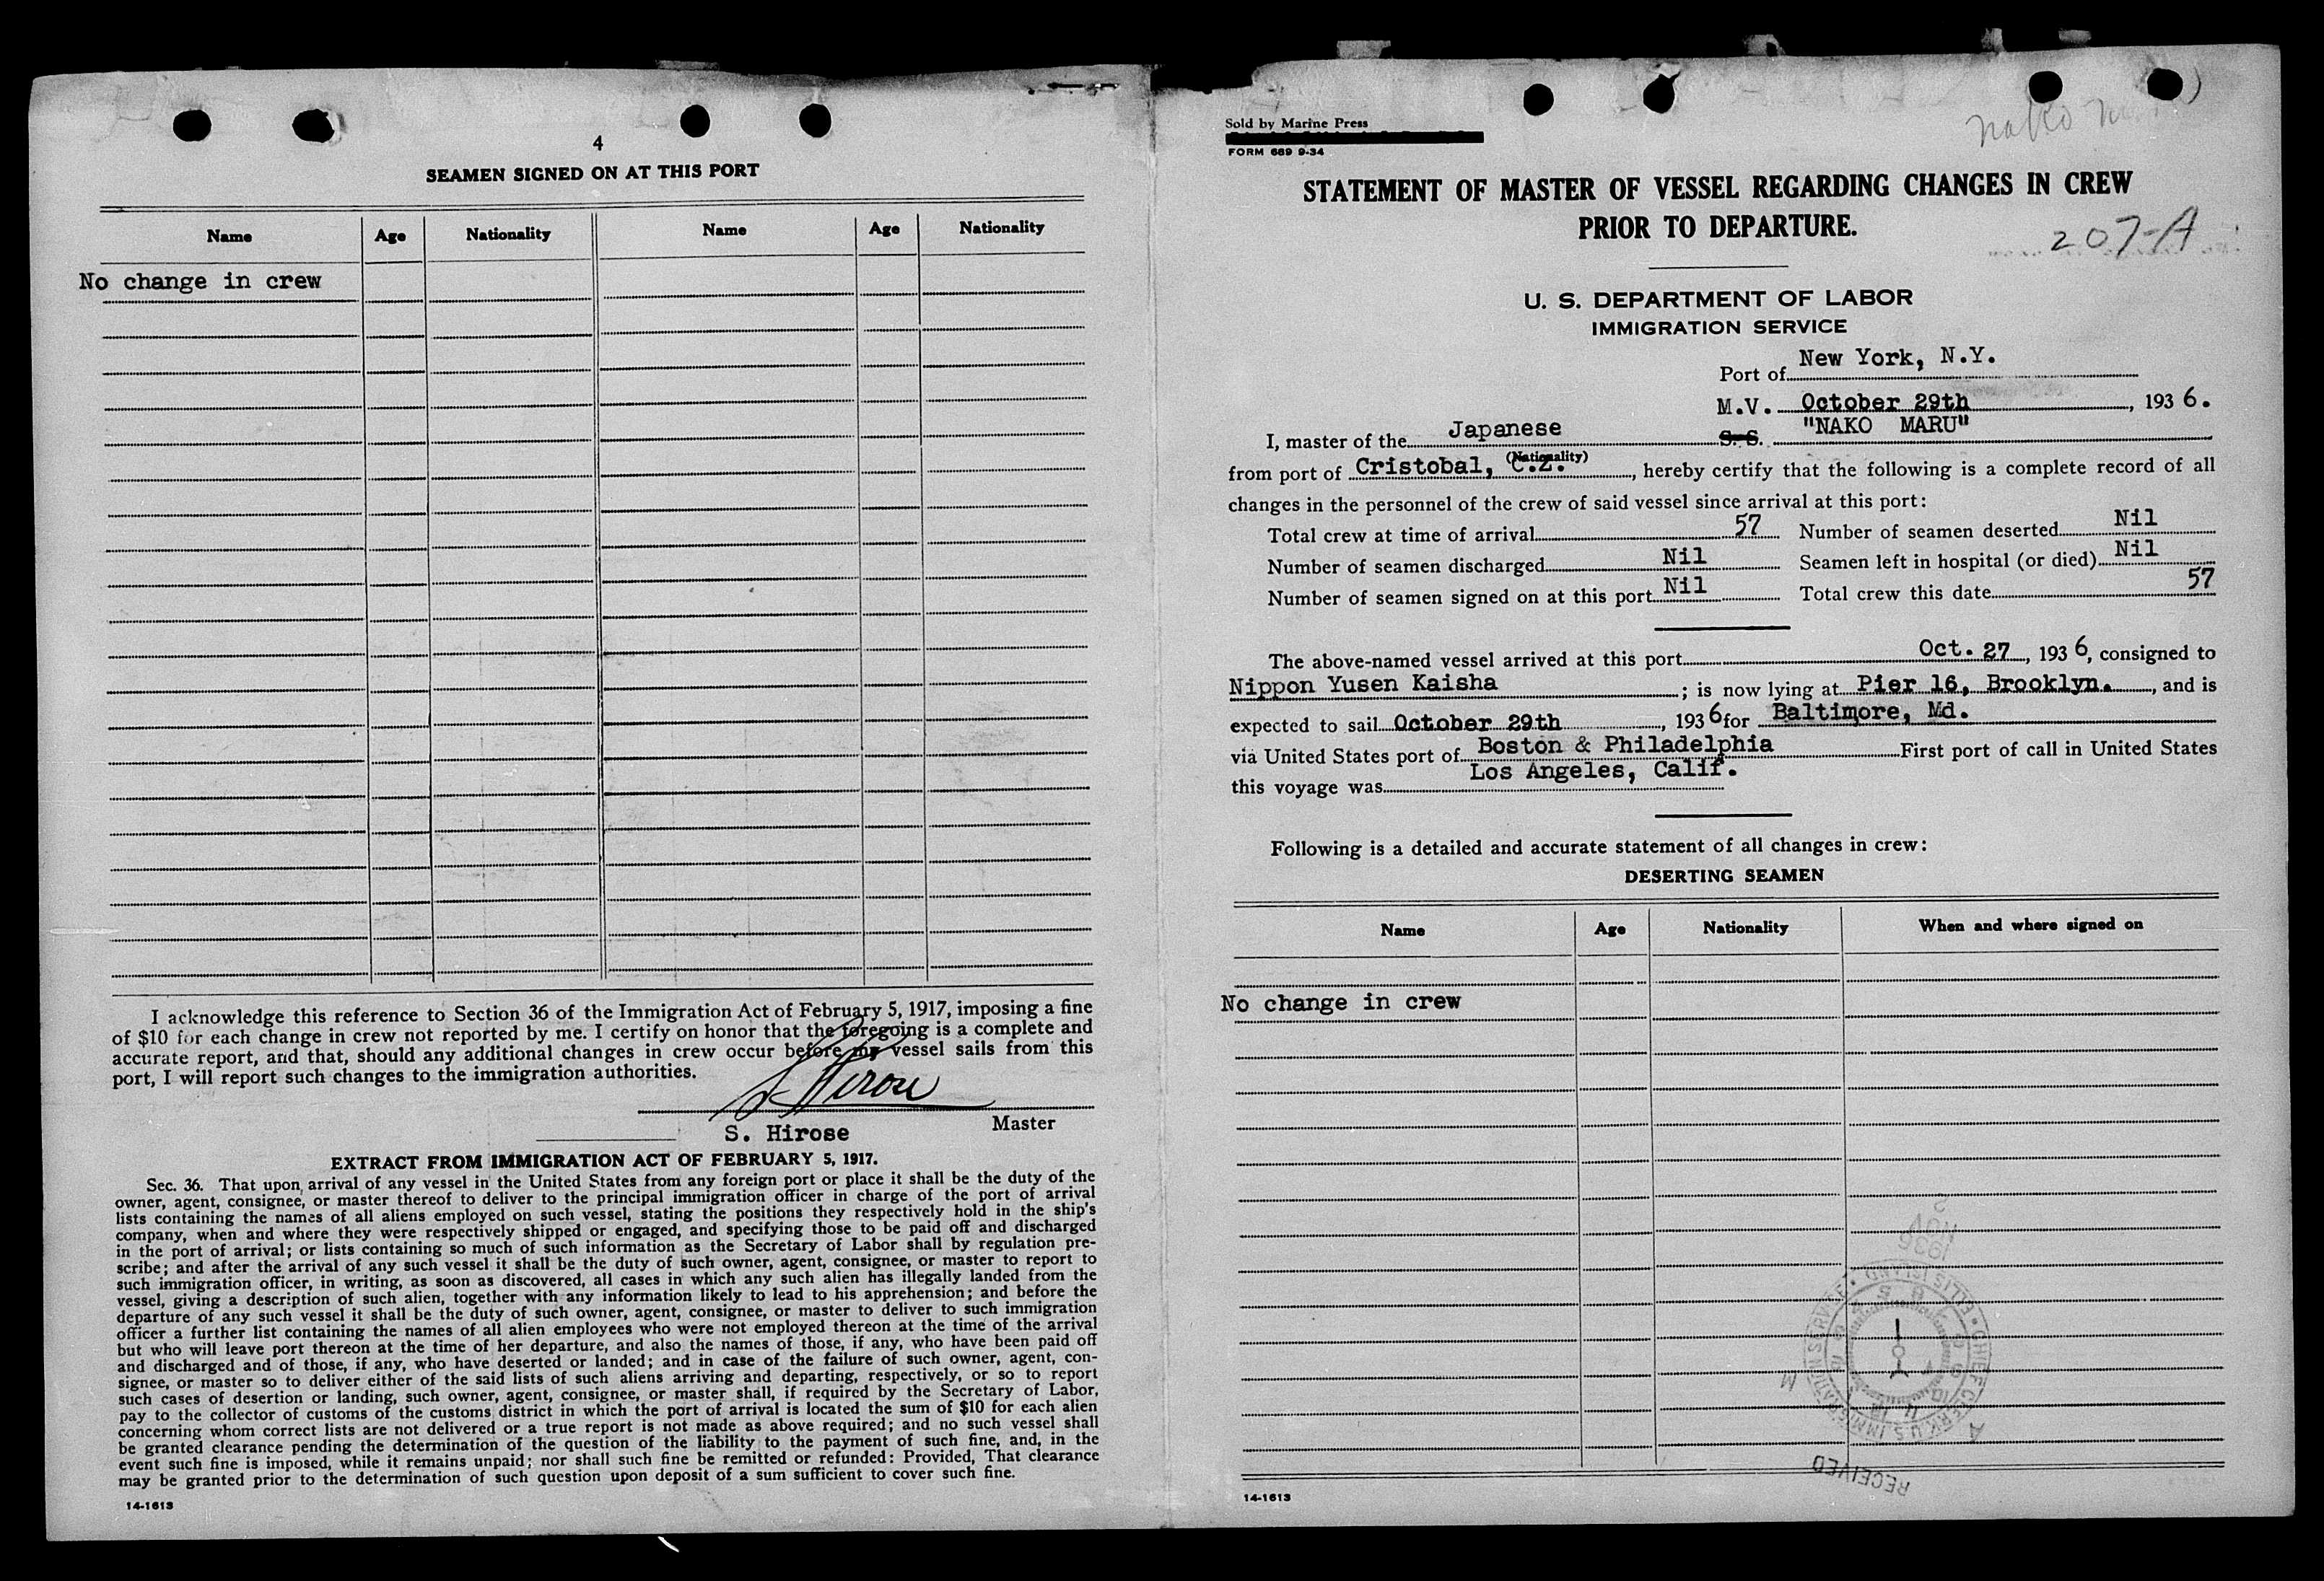 4
SEAMEN SIGNED ON AT THIS PORT
Name Age Nationality Name Age Nationality
No change in crew
I acknowledge this reference to Section 36 of the Immigration Act of February 5, 1917, imposing a fine
of $10 for each change in crew not reported by me. I certify on honor that the foregoing is a complete and
accurate report, and that, should any additional changes in crew occur before my vessel sails from this
port, I will report such changes to the immigration authorities.
S. Hirose
Master
EXTRACT FROM IMMIGRATION ACT OF FEBRUARY 5, 1917.
Sec. 36. That upon arrival of any vessel in the United States from any foreign port or place it shall be the duty of the
owner, agent, consignee, or master thereof to deliver to the principal immigration officer in charge of the port of arrival
lists containing the names of all aliens employed on such vessel, stating the positions they respectively hold in the ship's
company, when and where they were respectively shipped or engaged, and specifying those to be paid off and discharged
in the port of arrival; or lists containing so much of such information as the Secretary of Labor shall by regulation pre-
scribe; and after the arrival of any such vessel it shall be the duty of such owner, agent, consignee, or master to report to
such immigration officer, in writing, as soon as discovered, all cases in which any such alien has illegally landed from the
vessel, giving a description of such alien, together with any information likely to lead to his apprehension; and before the
departure of any such vessel it shall be the duty of such owner, agent, consignee, or master to deliver to such immigration
officer a further list containing the names of all alien employees who were not employed thereon at the time of the arrival
but who will leave port thereon at the time of her departure, and also the names of those, if any, who have been paid off
and discharged and of those, if any, who have deserted or landed; and in case of the failure of such owner, agent, con-
signee, or master so to deliver either of the said lists of such aliens arriving and departing, respectively, or so to report
such cases of desertion or landing, such owner, agent, consignee, or master shall, if required by the Secretary of Labor,
pay to the collector of customs of the customs district in which the port of arrival is located the sum of $10 for each alien
concerning whom correct lists are not delivered or a true report is not made as above required; and no such vessel shall
be granted clearance pending the determination of the question of the liability to the payment of such fine, and, in the
event such fine is imposed, while it remains unpaid; nor shall such fine be remitted or refunded: Provided, That clearance
may be granted prior to the determination of such question upon deposit of a sum sufficient to cover such fine.
14-1613
Sold by Marine Press
FORM 689 9-34
Nako
STATEMENT OF MASTER OF VESSEL REGARDING CHANGES IN CREW
PRIOR TO DEPARTURE.
207-A
U. S. DEPARTMENT OF LABOR
IMMIGRATION SERVICE
Port of New York, N.Y.
M.V. October 29th, 1936.
I, master of the Japanese S. S. "NAKO MARU"
(Nationality)
from port of Cristobal, C.Z., hereby certify that the following is a complete record of all
changes in the personnel of the crew of said vessel since arrival at this port:
Total crew at time of arrival 57 Number of seamen deserted Nil
Number of seamen discharged Nil Seamen left in hospital (or died) Nil
Number of seamen signed on at this port Nil Total crew this date 57
The above-named vessel arrived at this port Oct. 27, 1936, consigned to
Nippon Yusen Kaisha; is now lying at Pier 16, Brooklyn., and is
expected to sail October 29th, 1936 for Baltimore, Md.
via United States port of Boston & Philadelphia First port of call in United States
this voyage was Los Angeles, Calif.
Following is a detailed and accurate statement of all changes in crew:
DESERTING SEAMEN
Name Age Nationality When and where signed on
No change in crew
2
NOV
1936
CHIEF CLERK U.S. IMMIGRATION SERVICE ELLIS ISLAND
RECEIVED
14-1613